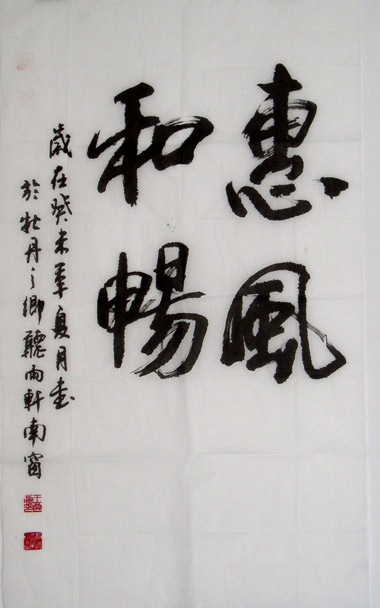 惠風
和暢
歲在癸未年夏月書
於牡丹之鄉聽雨軒南窗